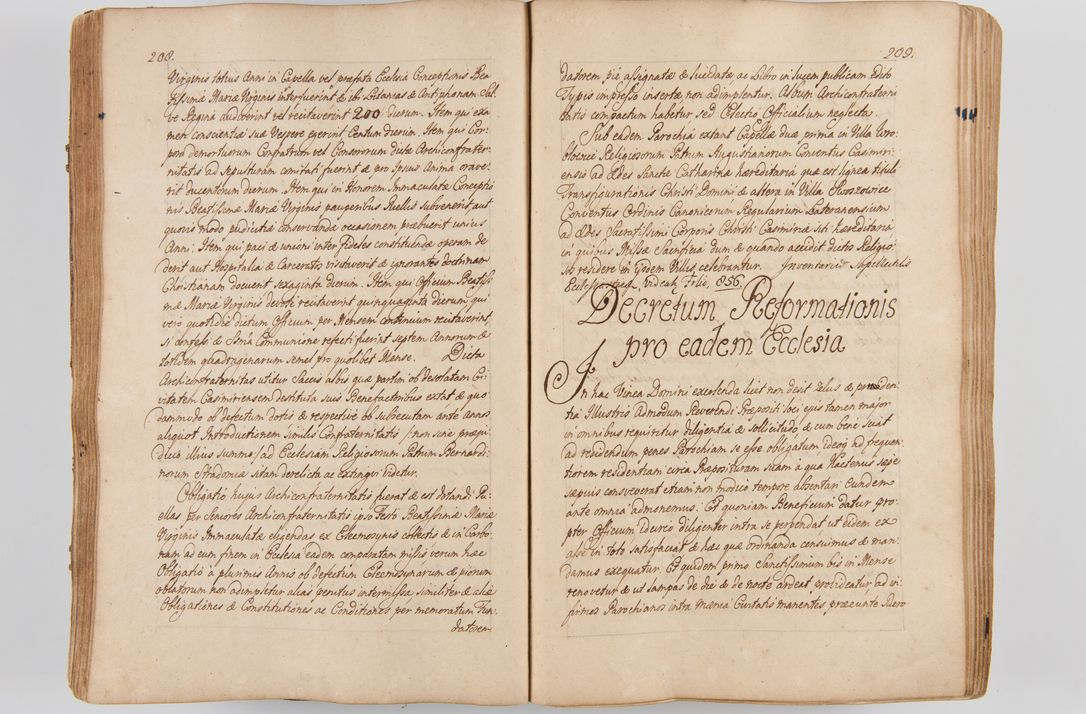 208.
Virginis totius Anni in Capella vel præfata Ecclesia Conceptionis Bea-
tissimæ Mariæ Virginis interfuerint & ibi Litanias & Antiphonam Sal-
ve Regina audiverint vel recitaverint 200 dierum. Item qui exa-
men conscientiæ suæ Vespere egerint Centum dierum. Item qui Cor-
pora demortuorum Confratrum vel Consororum dictæ Archiconfrater-
nitatis ad sepulturam comitati fuerint & pro Ipsius Anima orave-
rit ducentorum dierum. Item qui in Honorem Immaculatæ Conceptio-
nis Beatissimæ Mariæ Virginis pauperibus Puellis subvenerit aut
quovis modo pudicitiæ conservandæ occasionem præbuerit unius
Anni. Item qui paci & unioni inter fideles constituendæ operam de-
derit aut Hospitalia & Carceratos visitaverit & ignorantes doctrinam
Christianam docuerit sexaginta dierum. Item qui Officium Beatissi-
mæ Mariæ Virginis devote recitaverint quinquaginta dierum, qui
vero quotidie dictum Officium per Mensem continuum recitaverint
si confessi & Sacra Communione refecti fuerint septem Annorum &
totidem quadragenarum semel pro quolibet Mense. Dicta
Archiconfraternitas utitur Saccis albis quæ partim ob desolatam Ci-
vitatem Casimiriensem destituta suis Benefactoribus extat & quo-
dammodo ob defectum dotis & respective ob subsecutam ante Annos
aliquot Introductionem similis Confraternitatis /: non sine præju-
dicio illius summo :/ ad Ecclesiam Religiosorum Patrum Bernardi-
norum e Stradomiæ sitam derelicta ac extingui videtur.
Obligatio hujus Archiconfraternitatis fuerat & est dotandi Pu-
ellas per seniores Archiconfraternitatis ipso Festo Beatissimæ Mariæ
Virginis Immaculatæ eligendas ex Eleemosynis collectis & in Carbo-
nam ad eum finem in Ecclesia eadem comparatam missis verum hæc
Obligatio a plurimis Annis ob defectum Eleemosynarum & piorum
oblatorum non adimpletur alias penitus intermissa similiter & aliæ
Obligationes & Constitutiones ac Conditiones per memoratum Fun-
datorem
209.
datorem pie assignatæ & suscitatæ ac Libro in lucem publicam edito
Typis impresso insertæ non adimplentur. Album Archiconfraterni-
tatis compactum habetur sed Electio Officialium neglecta.
Sub eadem Parochia extant Capellæ duæ prima in Villa
Religiosorum Patrum Augustianorum Conventus Casimiri-
ensis ad Ædes Sanctæ Catharinæ hæreditaria quæ est lignea tituli
Transfigurationis Christi Domini & altera in Villa Swoszowice
Conventus Ordinis Canonicorum Regularium Lateranensium
ad Ædes Sacratissimi Corporis Christi Casimiriæ siti hæreditaria
in quibus Missæ Sacrificia dum & quando accidit dictos Religio-
sos residere in iisdem Villis celebrantur. Inventarium Supellectilis
Ecclesiasticæ videatur Folio 856.
Decretum Reformationis
pro eadem Ecclesia
In hac Vinea Domini excolenda licet non desit Zelus & pruden-
tia Illustris Admodum Reverendi Præpositi loci ejus tamen major
in omnibus requiritur diligentia & sollicitudo & cum bene sciat
ad residendum penes Parochiam se esse obligatum ideoq ad frequen-
tiorem residentiam circa Præposituram suam a qua hactenus sæpe
sæpius consueverat etiam non modico tempore absentari Eundem
ante omnia admonemus. Et quoniam Beneficium datur pro-
pter Officium idcirco diligenter intra se perpendat ut eidem ex
asse in toto satisfaciat & hæc quæ ordinanda censuimus & man-
damus exequatur. Et quidem primo Sanctissimum bis in Mense
renovetur & ut lampas de die & de nocte ardeat provideatur, ad in-
firmos Parochianos intra Mænia Civitatis manentes præeunte